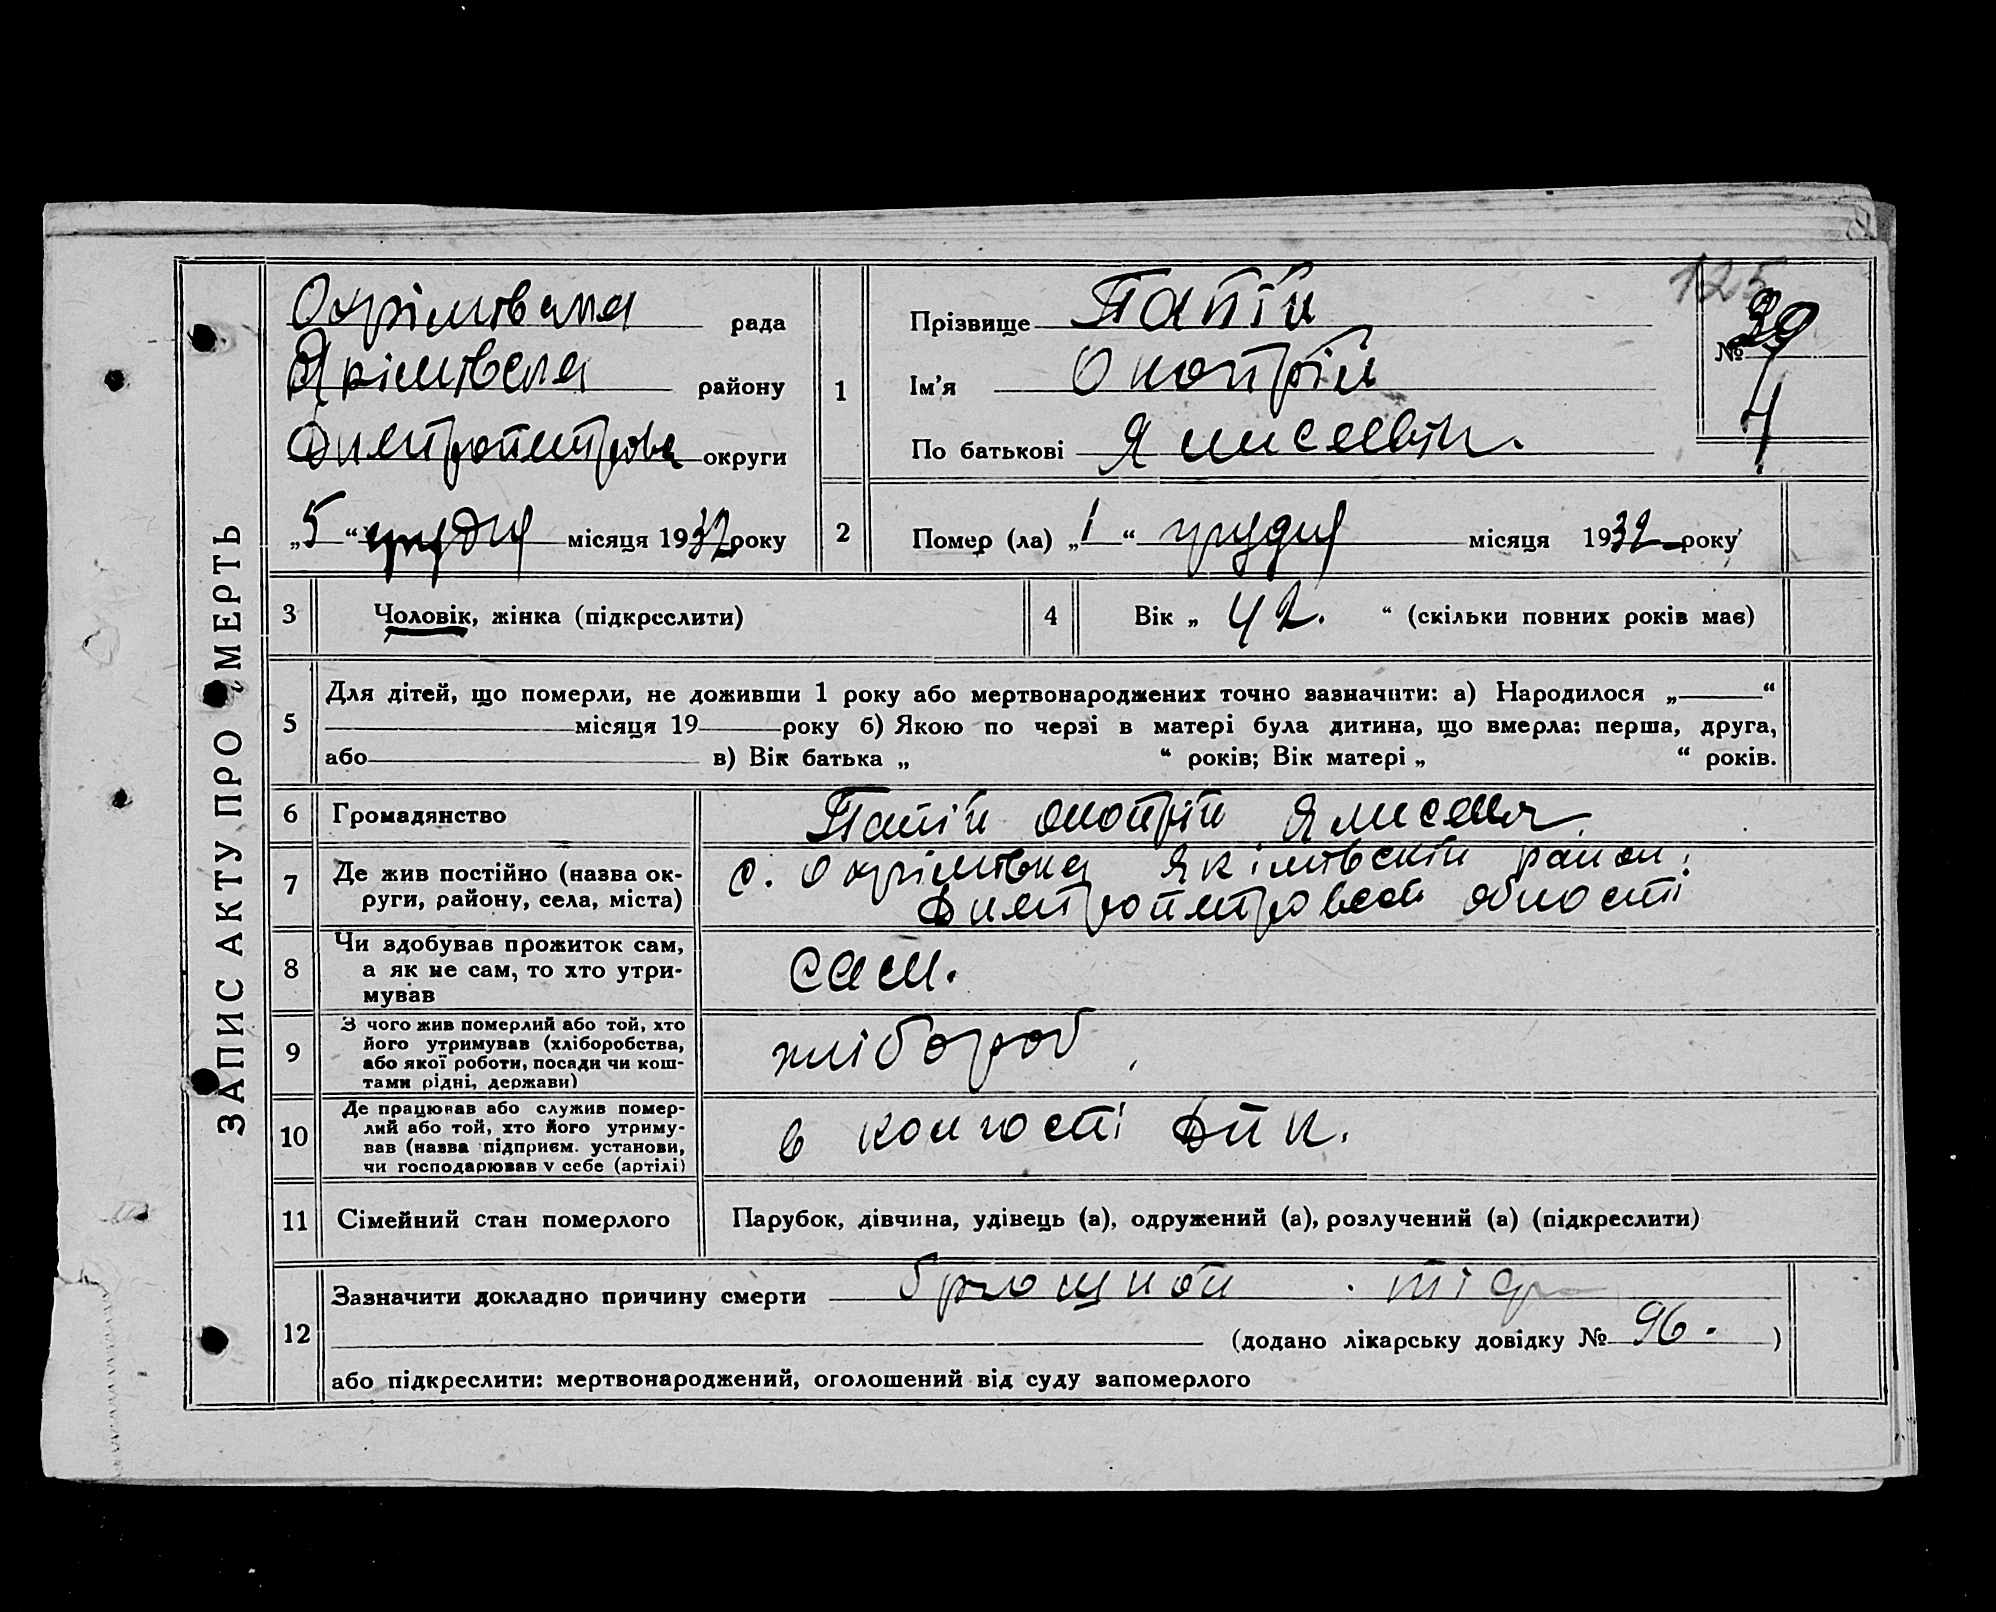 ЗАПИС АКТУ ПРО СМЕРТЬ
125
Охрімівська рада
Якімівська району
Дніпропетровська округи
„5“ грудня місяця 1932 року
1
Прізвище Папій
Ім'я
По батькові
№ 39
4
2
Помер (ла) „1“ грудня місяця 1932 року
3
Чоловік, жінка (підкреслити)
4
Вік „42.“ (скільки повних років має)
5
Для дітей, що померли, не доживши 1 року або мертвонароджених точно зазначити: а) Народилося „ “
місяця 19 року б) Якою по черзі в матері була дитина, що вмерла: перша, друга,
або в) Вік батька „ “ років; Вік матері „ “ років.
6
Громадянство
Папій
7
Де жив постійно (назва ок-
руги, району, села, міста)
с. Охрімівка Якімівскій район.
області
8
Чи здобував прожиток сам,
а як не сам, то хто утри-
мував
сам.
9
З чого жив померлий або той, хто
його утримував (хліборобства,
або якої роботи, посади чи кош-
тами рідні, держави)
хлібороб
10
Де працював або служив помер-
лий або той, хто його утриму-
вав (назва підприєм. установи,
чи господарював у себе (артілі)
в
11
Сімейний стан померлого
Парубок, дівчина, удівець (а), одружений (а), розлучений (а) (підкреслити)
12
Зазначити докладно причину смерти брюшной тіф
(додано лікарську довідку № 96. )
або підкреслити: мертвонароджений, оголошений від суду запомерлого